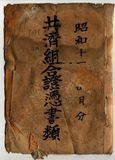 昭和十一 月分
共済組合證憑書類